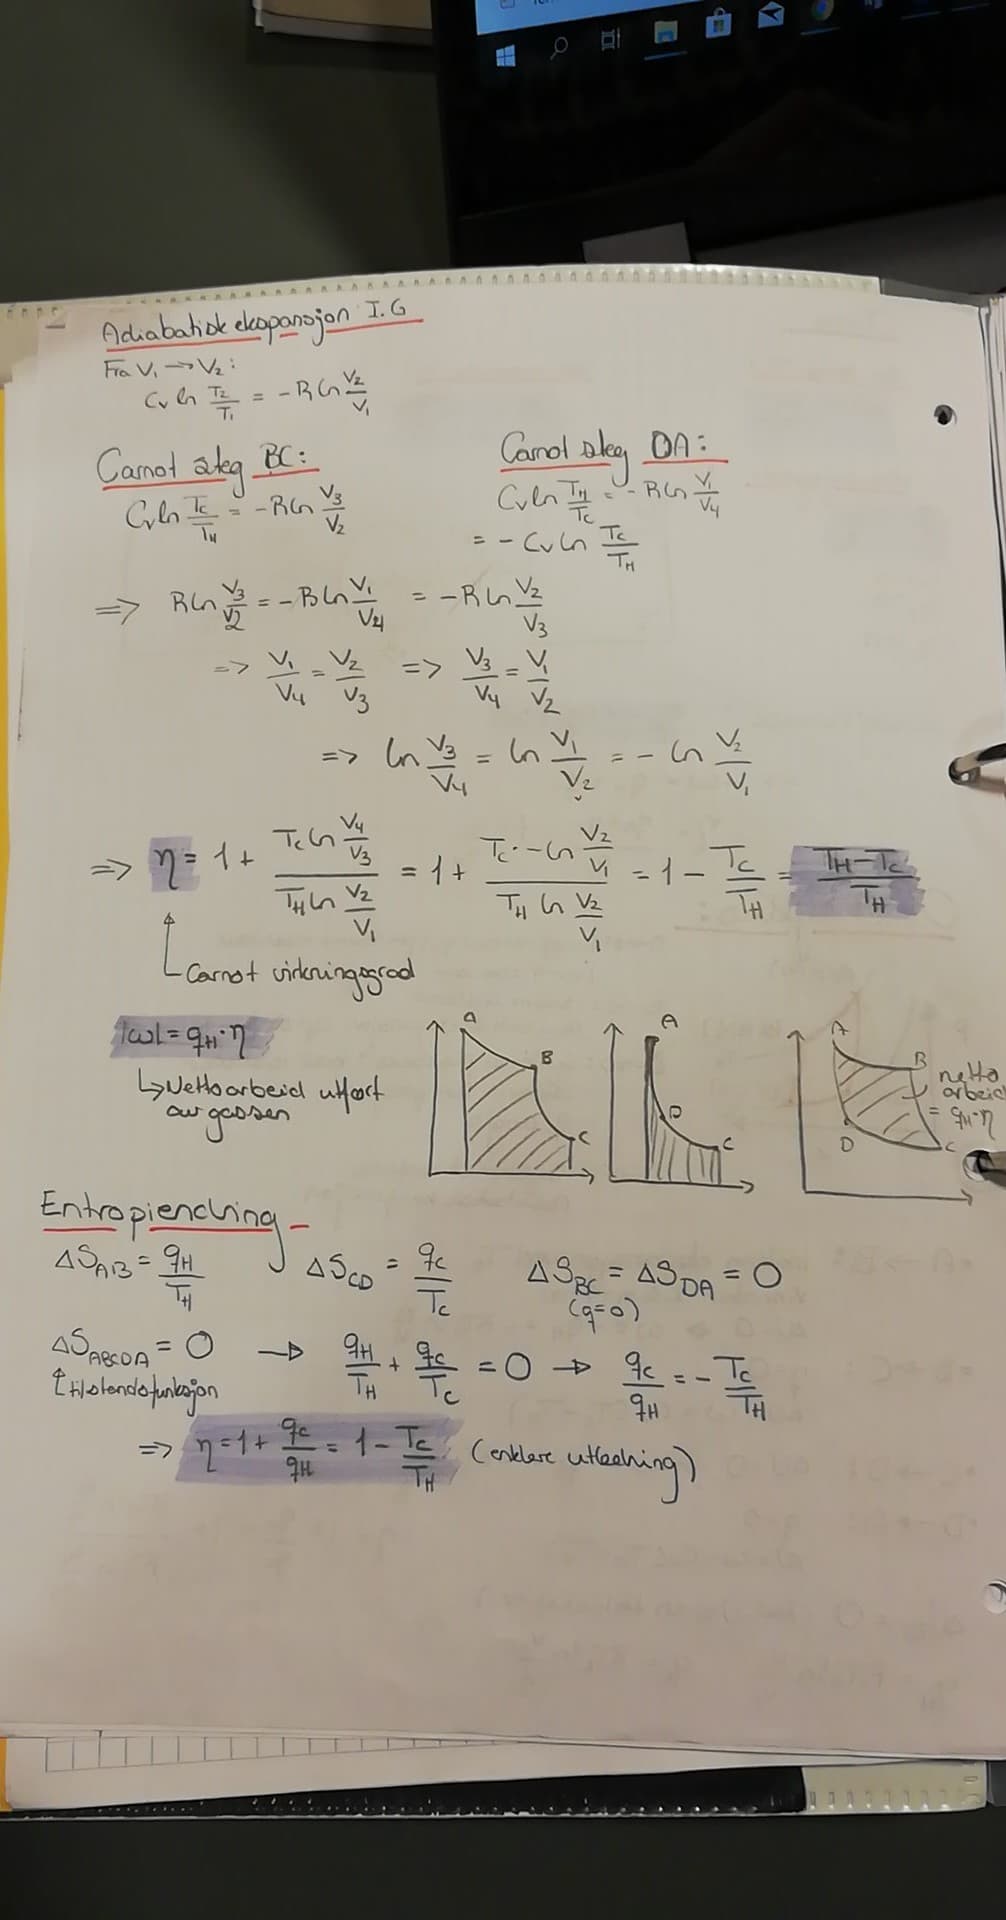 Adiabatisk ekspansjon I.G
Fra V₁ → V₂:
Cv ln T₂/T₁ = -R ln V₂/V₁
Carnot steg BC:
Cv ln Tc/TH = -R ln V₃/V₂
Carnot steg DA:
Cv ln TH/Tc = -R ln V₁/V₄
= -Cv ln Tc/TH
=> R ln V₃/V₂ = -R ln V₁/V₄ = -R ln V₂/V₃
=> V₁/V₄ = V₂/V₃ => V₃/V₄ = V₁/V₂
=> ln V₃/V₄ = ln V₁/V₂ = - ln V₂/V₁
=> η = 1 + (Tc ln V₄/V₃)/(TH ln V₂/V₁) = 1 + (Tc · -ln V₂/V₁)/(TH ln V₂/V₁) = 1 - Tc/TH = (TH - Tc)/TH
Carnot virkningsgrad
|ω| = qH · η
↳ Netto arbeid utført
av gassen
A
B
C
A
D
C
A
B
D
C
netto
arbeid
= qH · η
Entropiendring
ΔS_AB = qH/TH
ΔS_CD = qc/Tc
ΔS_BC = ΔS_DA = 0
(q=0)
ΔS_ABCDA = 0 → qH/TH + qc/Tc = 0 → qc/qH = - Tc/TH
↑ tilstandsfunksjon
=> η = 1 + qc/qH = 1 - Tc/TH (enklere utledning)